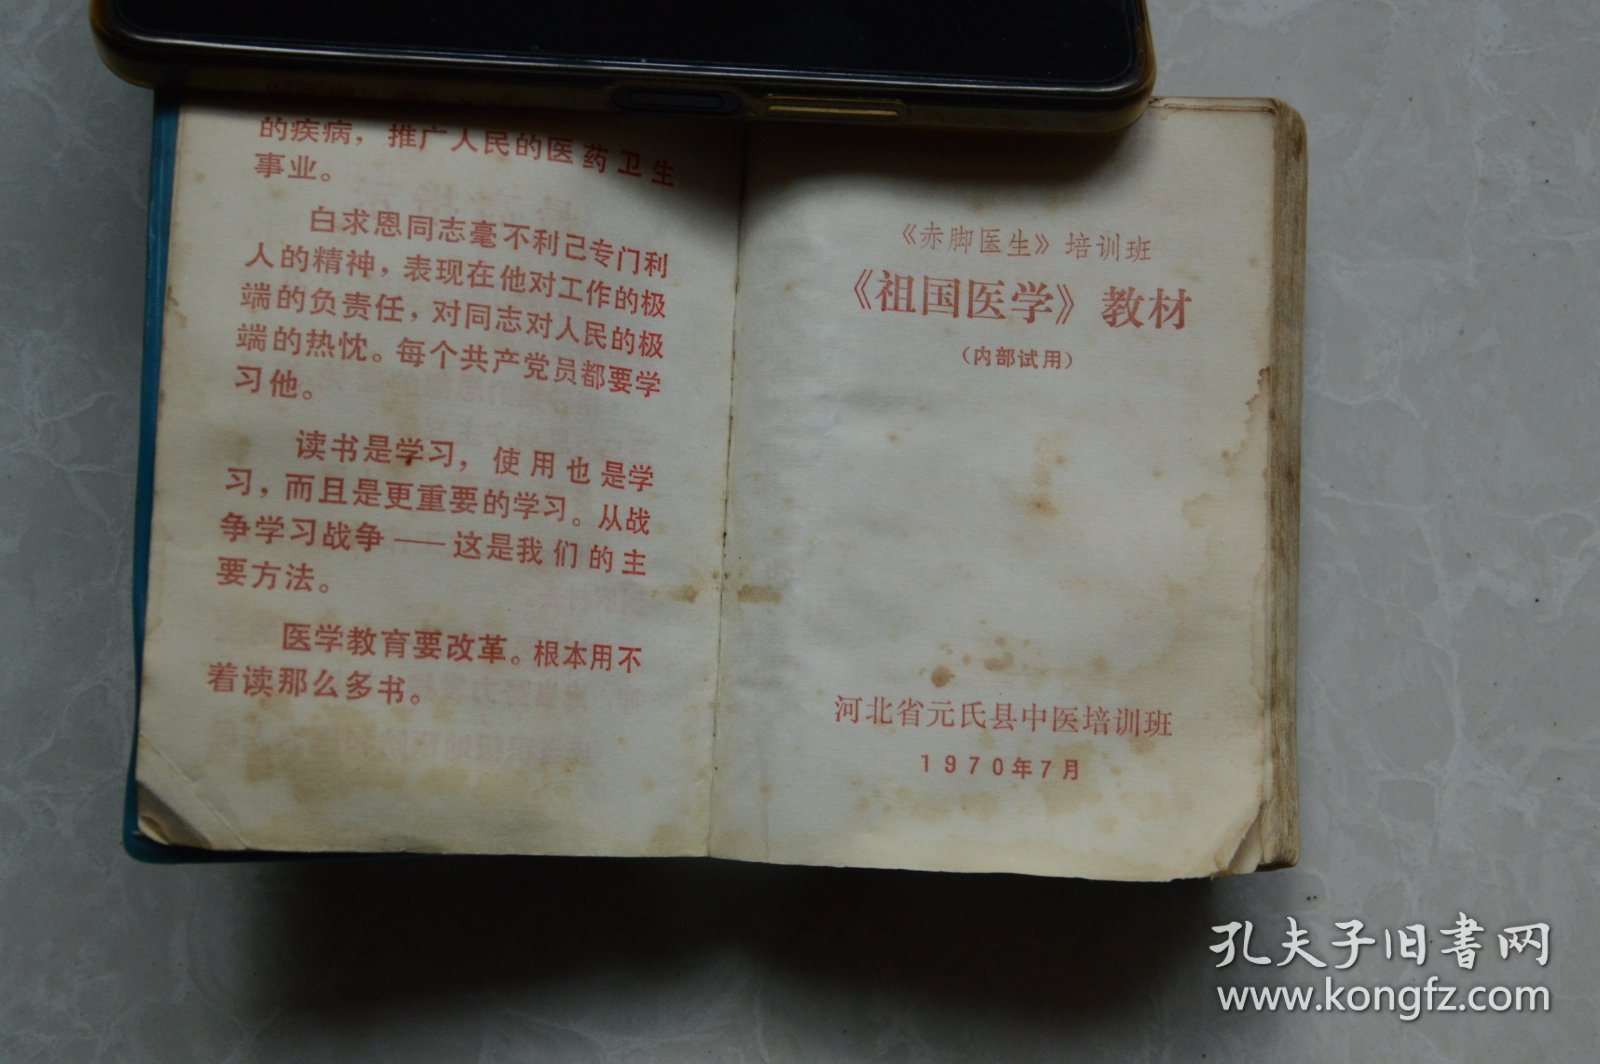 的疾病，推广人民的医药卫生
事业。
白求恩同志毫不利己专门利
人的精神，表现在他对工作的极
端的负责任，对同志对人民的极
端的热忱。每个共产党员都要学
习他。
读书是学习，使用也是学
习，而且是更重要的学习。从战
争学习战争——这是我们的主
要方法。
医学教育要改革。根本用不
着读那么多书。
《赤脚医生》培训班
《祖国医学》教材
（内部试用）
河北省元氏县中医培训班
1970年7月
孔夫子旧书网
www.kongfz.com